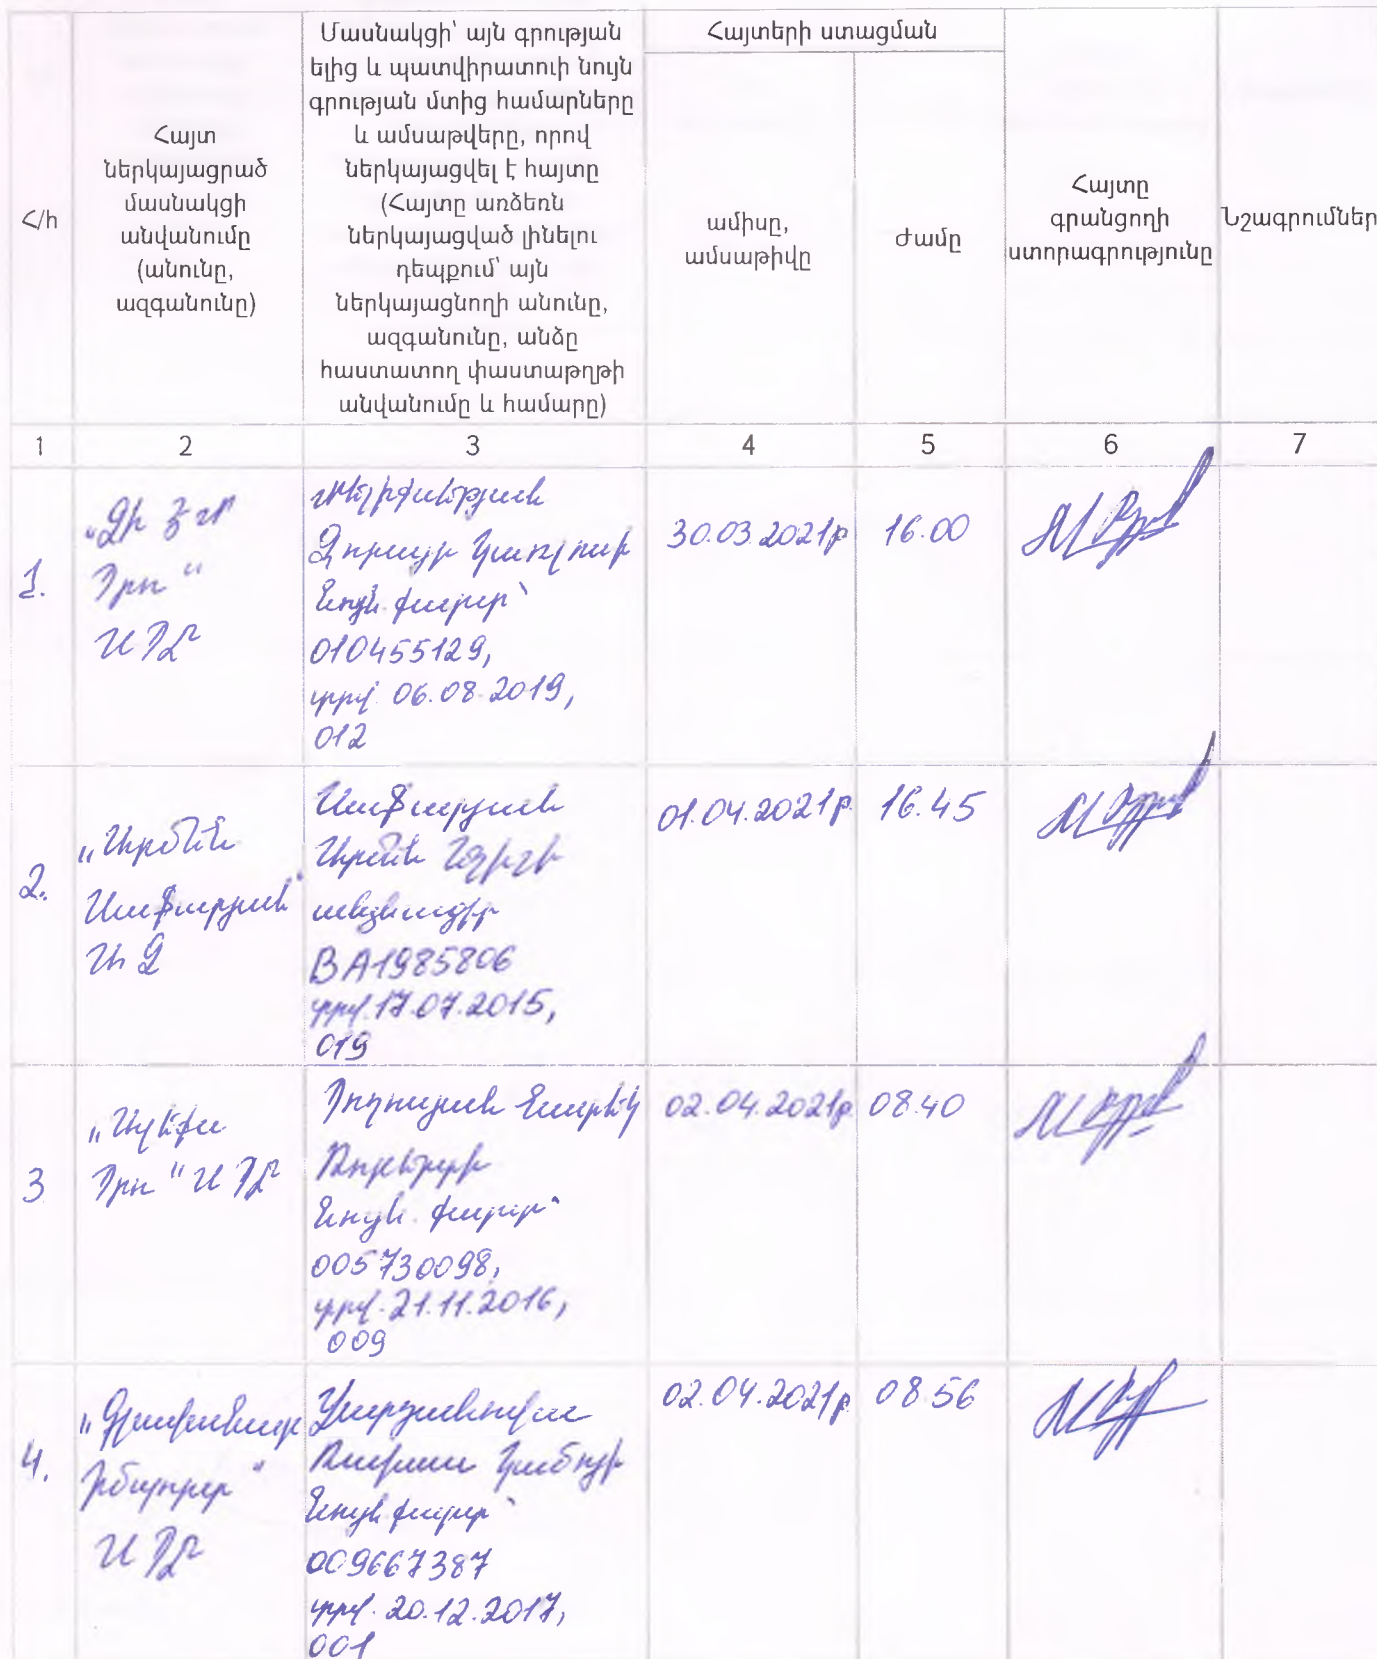 Հ/հ
Հայտ
ներկայացրած
մասնակցի
անվանումը
(անունը,
ազգանունը)
Մասնակցի՝ այն գրության
ելից և պատվիրատուի նույն
գրության մտից համարները
և ամսաթվերը, որով
ներկայացվել է հայտը
(Հայտը առձեռն
ներկայացված լինելու
դեպքում՝ այն
ներկայացնողի անունը,
ազգանունը, անձը
հաստատող փաստաթղթի
անվանումը և համարը)
Հայտերի ստացման
ամիսը,
ամսաթիվը
ժամը
Հայտը
գրանցողի
ստորագրությունը
Նշագրումներ
1 2 3 4 5 6 7
1.
ՍՊԸ
Նույն. քարտ՝
010455129,
տրվ. 06.08.2019,
012
30.03.2021թ 16.00
2.
„Արմեն
Սաֆարյան“
ԱՁ
Սաֆարյան
Արմեն
անձնագիր
BA1985806
տրվ. 17.07.2015,
019
01.04.2021թ. 16.45
3
Պրո“ ՍՊԸ
Պողոսյան Նարեկ
Ռոբերտի
Նույն. քարտ՝
005730098,
տրվ. 21.11.2016,
009
02.04.2021թ. 08.40
4.
ՍՊԸ
Նույն քարտ՝
009667387
տրվ. 20.12.2017,
001
02.04.2021թ 08.56